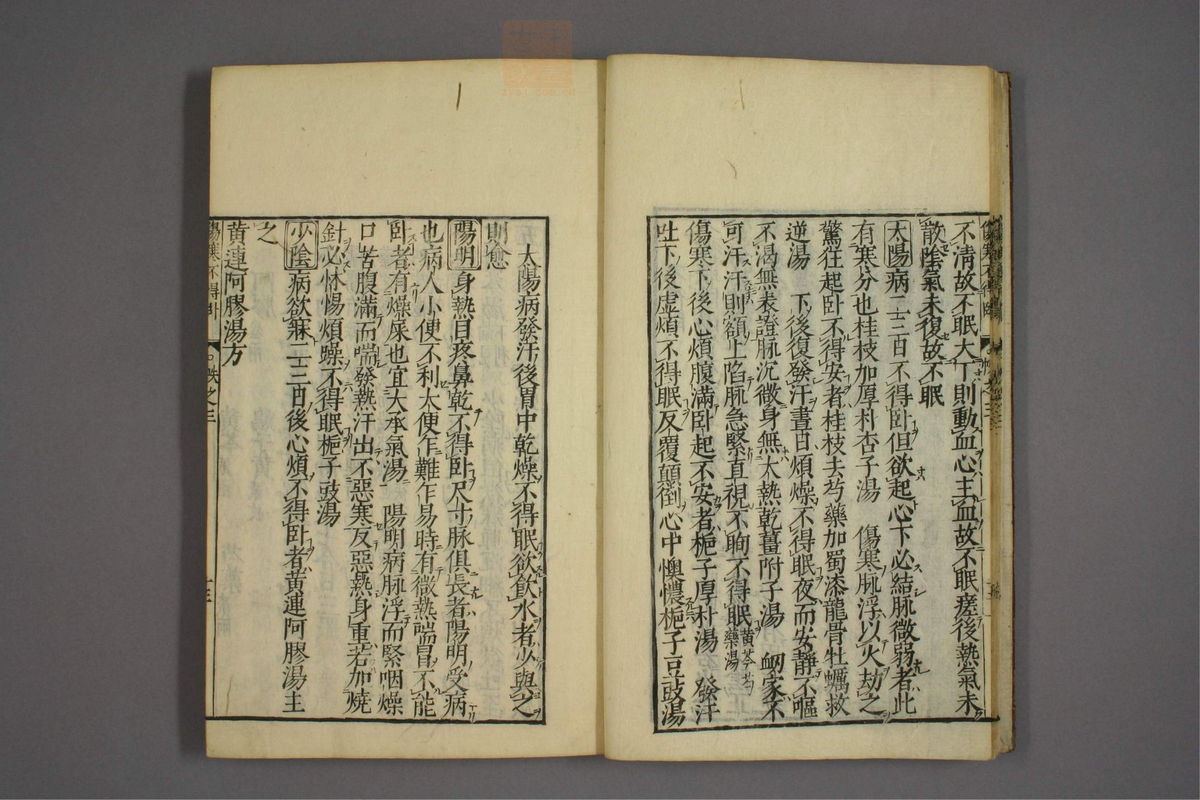 不清故不眠大下則動血心主血故不眠瘥後熱氣未
散陰氣未復故不眠
太陽病二三日不得卧但欲起心下必結脉微弱者此
有寒分也桂枝加厚朴杏子湯 傷寒脉浮以火劫之
驚狂起卧不得安者桂枝去芍藥加蜀漆龍骨牡蠣救
逆湯 下後復發汗晝日煩燥不得眠夜而安靜不嘔
不渴無表證脉沉微身無大熱乾薑附子湯 衂家不
可汗汗則額上陷脉急緊直視不眴不得眠黄芩芍藥湯
傷寒下後心煩腹滿卧起不安者梔子厚朴湯 發汗
吐下後虚煩不得眠反覆顛倒心中懊憹梔子豆豉湯
太陽病發汗後胃中乾燥不得眠欲飲水者少與之
則愈
陽明身熱目疼鼻乾不得卧尺寸脉俱長者陽明受病
也病人小便不利大便乍難乍易時有微熱喘冒不能
卧者有燥屎也宜大承氣湯 陽明病脉浮而緊咽燥
口苦腹滿而喘發熱汗出不惡寒反惡熱身重若加燒
針必怵惕煩躁不得眠梔子豉湯
少陰病欲寐二三日後心煩不得卧者黄連阿膠湯主
之
黄連阿膠湯方
傷寒不得卧
之三
十三